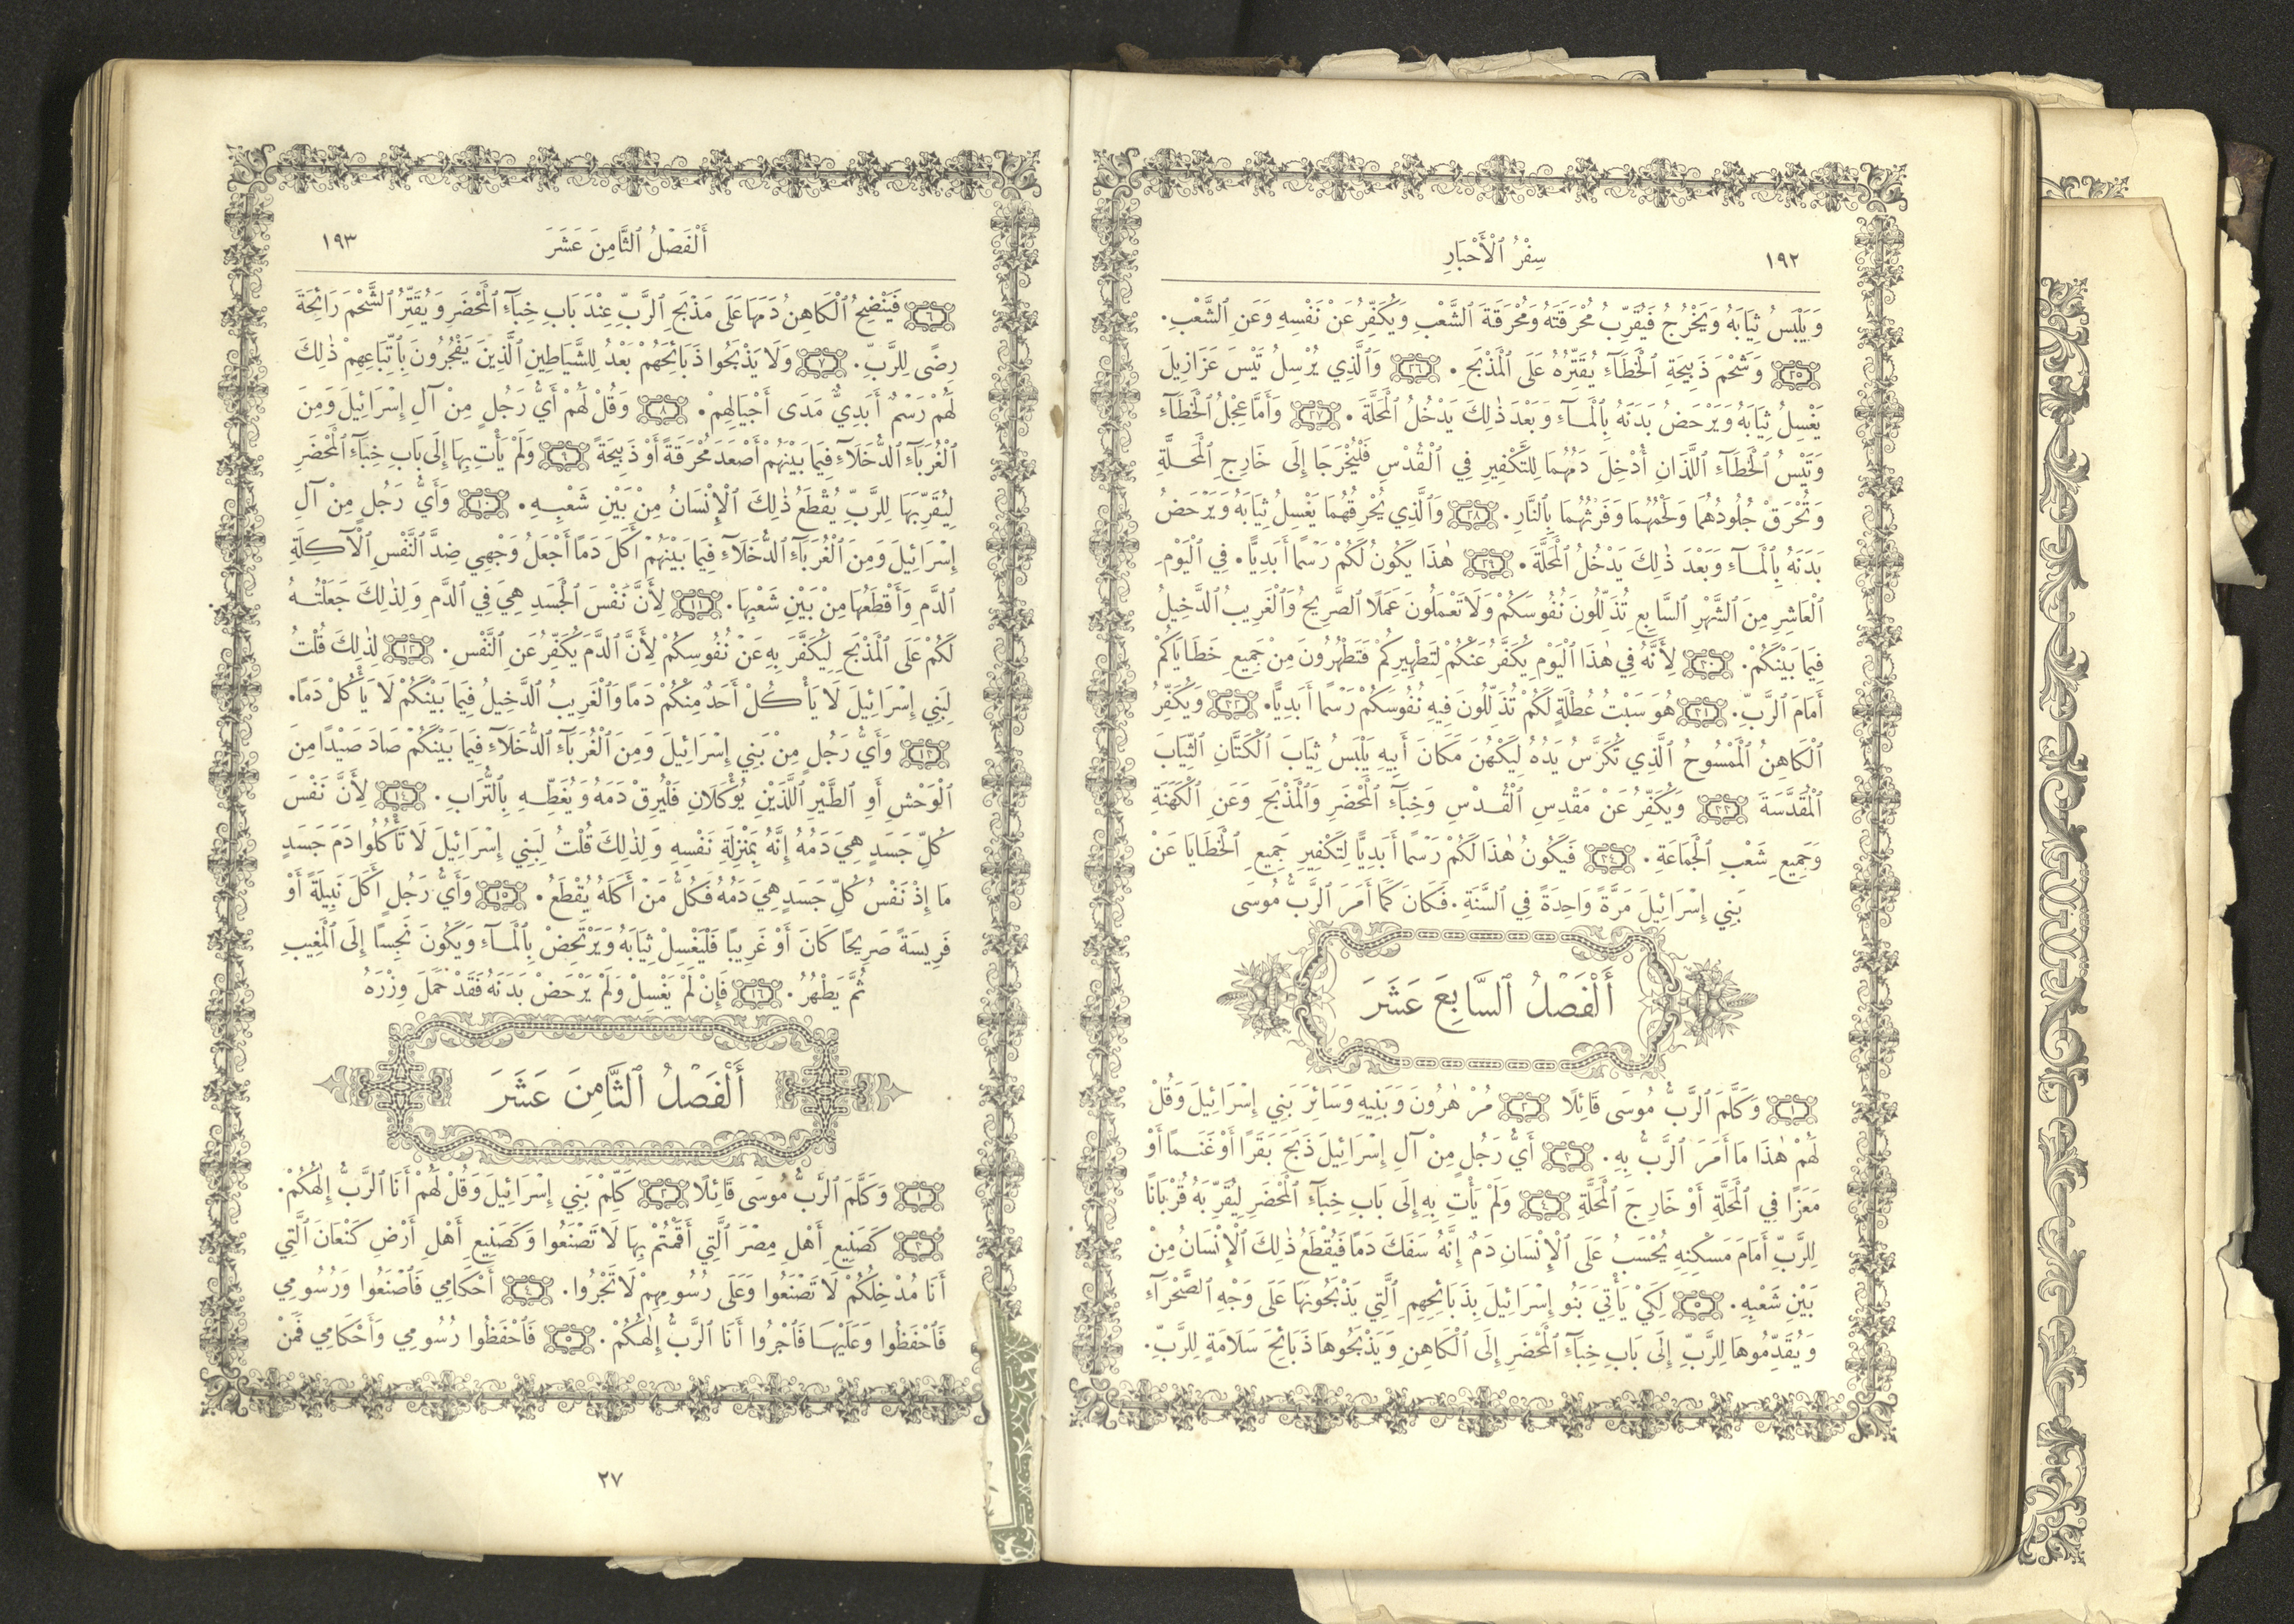 ١٩٢
سِفْرُ ٱلْأَحْبَارِ
وَيَلْبَسُ ثِيَابَهُ وَيَخْرُجُ فَيُقَرِّبُ مُحْرَقَتَهُ وَمُحْرَقَةَ ٱلشَّعْبِ وَيُكَفِّرُ عَنْ نَفْسِهِ وَعَنِ ٱلشَّعْبِ.
٢٥ وَشَحْمَ ذَبِيحَةِ ٱلْخَطَآءِ يُقَتِّرُهُ عَلَى ٱلْمَذْبَحِ. ٢٦ وَٱلَّذِي يُرْسِلُ تَيْسَ عَزَازِيلَ
يَغْسِلُ ثِيَابَهُ وَيَرْحَضُ بَدَنَهُ بِٱلْمَآءِ وَبَعْدَ ذٰلِكَ يَدْخُلُ ٱلْمَحَلَّةَ. ٢٧ وَأَمَّا عِجْلُ ٱلْخَطَآءِ
وَتَيْسُ ٱلْخَطَآءِ ٱللَّذَانِ أُدْخِلَ دَمُهُمَا لِلتَّكْفِيرِ فِي ٱلْقُدْسِ فَلْيُخْرَجَا إِلَى خَارِجِ ٱلْمَحَلَّةِ
وَتُحْرَقْ جُلُودُهُمَا وَلَحْمُهُمَا وَفَرْثُهُمَا بِٱلنَّارِ. ٢٨ وَٱلَّذِي يُحْرِقُهُمَا يَغْسِلُ ثِيَابَهُ وَيَرْحَضُ
بَدَنَهُ بِٱلْمَآءِ وَبَعْدَ ذٰلِكَ يَدْخُلُ ٱلْمَحَلَّةَ. ٢٩ هٰذَا يَكُونُ لَكُمْ رَسْمًا أَبَدِيًّا. فِي ٱلْيَوْمِ
ٱلْعَاشِرِ مِنَ ٱلشَّهْرِ ٱلسَّابِعِ تُذَلِّلُونَ نُفُوسَكُمْ وَلَا تَعْمَلُونَ عَمَلًا ٱلصَّرِيحُ وَٱلْغَرِيبُ ٱلدَّخِيلُ
فِيمَا بَيْنَكُمْ. ٣٠ لِأَنَّهُ فِي هٰذَا ٱلْيَوْمِ يُكَفَّرُ عَنْكُمْ لِتَطْهِيرِكُمْ فَتَطْهُرُونَ مِنْ جَمِيعِ خَطَايَاكُمْ
أَمَامَ ٱلرَّبِّ. ٣١ هُوَ سَبْتُ عُطْلَةٍ لَكُمْ تُذَلِّلُونَ فِيهِ نُفُوسَكُمْ رَسْمًا أَبَدِيًّا. ٣٢ وَيُكَفِّرُ
ٱلْكَاهِنُ ٱلْمَمْسُوحُ ٱلَّذِي تُكَرَّسُ يَدُهُ لِيَكْهُنَ مَكَانَ أَبِيهِ يَلْبَسُ ثِيَابَ ٱلْكَتَّانِ ٱلثِّيَابَ
ٱلْمُقَدَّسَةَ ٣٣ وَيُكَفِّرُ عَنْ مَقْدِسِ ٱلْقُدْسِ وَخِبَآءِ ٱلْمَحْضَرِ وَٱلْمَذْبَحِ وَعَنِ ٱلْكَهَنَةِ
وَجَمِيعِ شَعْبِ ٱلْجَمَاعَةِ. ٣٤ فَيَكُونُ هٰذَا لَكُمْ رَسْمًا أَبَدِيًّا لِتَكْفِيرِ جَمِيعِ ٱلْخَطَايَا عَنْ
بَنِي إِسْرَائِيلَ مَرَّةً وَاحِدَةً فِي ٱلسَّنَةِ. فَكَانَ كَمَا أَمَرَ ٱلرَّبُّ مُوسَى
أَلْفَصْلُ ٱلسَّابِعَ عَشَرَ
١ وَكَلَّمَ ٱلرَّبُّ مُوسَى قَائِلًا ٢ مُرْ هٰرُونَ وَبَنِيهِ وَسَائِرَ بَنِي إِسْرَائِيلَ وَقُلْ
لَهُمْ هٰذَا مَا أَمَرَ ٱلرَّبُّ بِهِ. ٣ أَيُّ رَجُلٍ مِنْ آلِ إِسْرَائِيلَ ذَبَحَ بَقَرًا أَوْ غَنَمًا أَوْ
مَعَزًا فِي ٱلْمَحَلَّةِ أَوْ خَارِجَ ٱلْمَحَلَّةِ ٤ وَلَمْ يَأْتِ بِهِ إِلَى بَابِ خِبَآءِ ٱلْمَحْضَرِ لِيُقَرِّبَهُ قُرْبَانًا
لِلرَّبِّ أَمَامَ مَسْكِنِهِ يُحْسَبُ عَلَى ٱلْإِنْسَانِ دَمٌ إِنَّهُ سَفَكَ دَمًا فَيُقْطَعُ ذٰلِكَ ٱلْإِنْسَانُ مِنْ
بَيْنِ شَعْبِهِ. ٥ لِكَيْ يَأْتِيَ بَنُو إِسْرَائِيلَ بِذَبَائِحِهِمِ ٱلَّتِي يَذْبَحُونَهَا عَلَى وَجْهِ ٱلصَّحْرَآءِ
وَيُقَدِّمُوهَا لِلرَّبِّ إِلَى بَابِ خِبَآءِ ٱلْمَحْضَرِ إِلَى ٱلْكَاهِنِ وَيَذْبَحُوهَا ذَبَائِحَ سَلَامَةٍ لِلرَّبِّ.
أَلْفَصْلُ ٱلثَّامِنَ عَشَرَ
١٩٣
٦ فَيَنْضِحُ ٱلْكَاهِنُ دَمَهَا عَلَى مَذْبَحِ ٱلرَّبِّ عِنْدَ بَابِ خِبَآءِ ٱلْمَحْضَرِ وَيُقَتِّرُ ٱلشَّحْمَ رَائِحَةَ
رِضًى لِلرَّبِّ. ٧ وَلَا يَذْبَحُوا ذَبَائِحَهُمْ بَعْدُ لِلشَّيَاطِينِ ٱلَّذِينَ يَفْجُرُونَ بِٱتِّبَاعِهِمْ ذٰلِكَ
لَهُمْ رَسْمٌ أَبَدِيٌّ مَدَى أَجْيَالِهِمْ. ٨ وَقُلْ لَهُمْ أَيُّ رَجُلٍ مِنْ آلِ إِسْرَائِيلَ وَمِنَ
ٱلْغُرَبَآءِ ٱلدُّخَلَآءِ فِيمَا بَيْنَهُمْ أَصْعَدَ مُحْرَقَةً أَوْ ذَبِيحَةً ٩ وَلَمْ يَأْتِ بِهَا إِلَى بَابِ خِبَآءِ ٱلْمَحْضَرِ
لِيُقَرِّبَهَا لِلرَّبِّ يُقْطَعُ ذٰلِكَ ٱلْإِنْسَانُ مِنْ بَيْنِ شَعْبِهِ. ١٠ وَأَيُّ رَجُلٍ مِنْ آلِ
إِسْرَائِيلَ وَمِنَ ٱلْغُرَبَآءِ ٱلدُّخَلَآءِ فِيمَا بَيْنَهُمْ أَكَلَ دَمًا أَجْعَلُ وَجْهِي ضِدَّ ٱلنَّفْسِ ٱلْآكِلَةِ
ٱلدَّمِ وَأَقْطَعُهَا مِنْ بَيْنِ شَعْبِهَا. ١١ لِأَنَّ نَفْسَ ٱلْجَسَدِ هِيَ فِي ٱلدَّمِ وَلِذٰلِكَ جَعَلْتُهُ
لَكُمْ عَلَى ٱلْمَذْبَحِ لِيُكَفَّرَ بِهِ عَنْ نُفُوسِكُمْ لِأَنَّ ٱلدَّمَ يُكَفِّرُ عَنِ ٱلنَّفْسِ. ١٢ لِذٰلِكَ قُلْتُ
لِبَنِي إِسْرَائِيلَ لَا يَأْكُلْ أَحَدٌ مِنْكُمْ دَمًا وَٱلْغَرِيبُ ٱلدَّخِيلُ فِيمَا بَيْنَكُمْ لَا يَأْكُلْ دَمًا.
١٣ وَأَيُّ رَجُلٍ مِنْ بَنِي إِسْرَائِيلَ وَمِنَ ٱلْغُرَبَآءِ ٱلدُّخَلَآءِ فِيمَا بَيْنَكُمْ صَادَ صَيْدًا مِنَ
ٱلْوَحْشِ أَوِ ٱلطَّيْرِ ٱللَّذَيْنِ يُؤْكَلَانِ فَلْيُرِقْ دَمَهُ وَيُغَطِّهِ بِٱلتُّرَابِ. ١٤ لِأَنَّ نَفْسَ
كُلِّ جَسَدٍ هِيَ دَمُهُ إِنَّهُ بِمَنْزِلَةِ نَفْسِهِ وَلِذٰلِكَ قُلْتُ لِبَنِي إِسْرَائِيلَ لَا تَأْكُلُوا دَمَ جَسَدٍ
مَا إِذْ نَفْسُ كُلِّ جَسَدٍ هِيَ دَمُهُ فَكُلُّ مَنْ أَكَلَهُ يُقْطَعُ. ١٥ وَأَيُّ رَجُلٍ أَكَلَ نَبِيلَةً أَوْ
فَرِيسَةً صَرِيحًا كَانَ أَوْ غَرِيبًا فَلْيَغْسِلْ ثِيَابَهُ وَيَرْتَحِضْ بِٱلْمَآءِ وَيَكُونَ نَجِسًا إِلَى ٱلْمَغِيبِ
ثُمَّ يَطْهُرُ. ١٦ فَإِنْ لَمْ يَغْسِلْ وَلَمْ يَرْحَضْ بَدَنَهُ فَقَدْ حَمَلَ وِزْرَهُ
أَلْفَصْلُ ٱلثَّامِنَ عَشَرَ
١ وَكَلَّمَ ٱلرَّبُّ مُوسَى قَائِلًا ٢ كَلِّمْ بَنِي إِسْرَائِيلَ وَقُلْ لَهُمْ أَنَا ٱلرَّبُّ إِلٰهُكُمْ.
٣ كَصَنِيعِ أَهْلِ مِصْرَ ٱلَّتِي أَقَمْتُمْ بِهَا لَا تَصْنَعُوا وَكَصَنِيعِ أَهْلِ أَرْضِ كَنْعَانَ ٱلَّتِي
أَنَا مُدْخِلُكُمْ لَا تَصْنَعُوا وَعَلَى رُسُومِهِمْ لَا تَجْرُوا. ٤ أَحْكَامِي فَٱصْنَعُوا وَرُسُومِي
فَٱحْفَظُوا وَعَلَيْهَا فَٱجْرُوا أَنَا ٱلرَّبُّ إِلٰهُكُمْ. ٥ فَٱحْفَظُوا رُسُومِي وَأَحْكَامِي فَمَنْ
٢٧